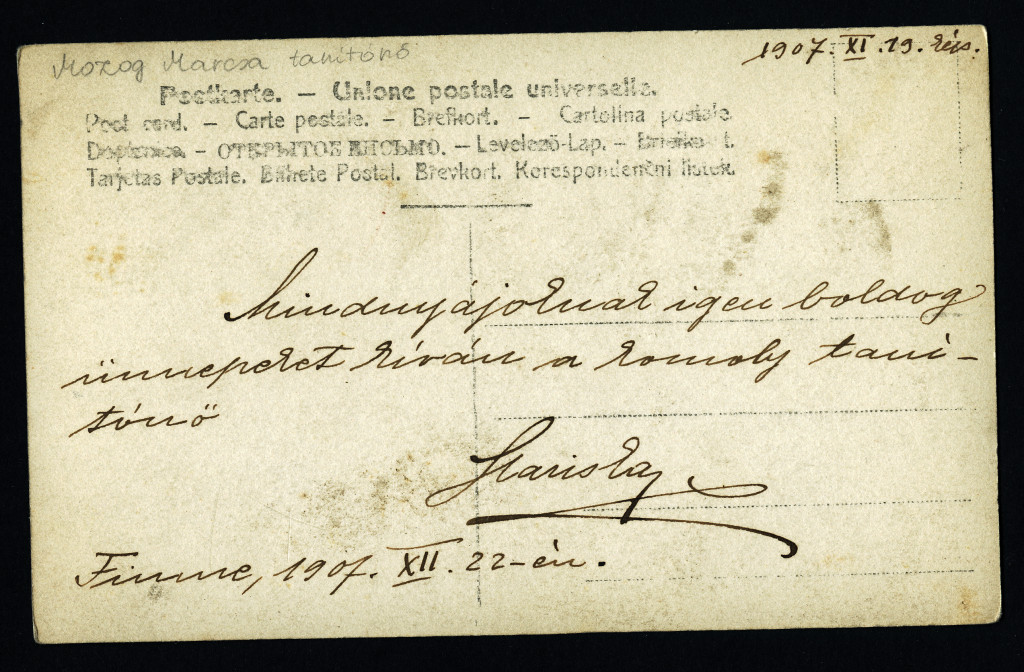 Mozog Marcsa tanítónő
1907. XI. 19. kés.
Postkarte. – Unione postale universelle.
Post card. – Carte postale. – Brefkort. – Cartolina postale.
Dopisnica – ОТКРЫТОЕ ПИСЬМО. – Levelező-Lap. –
Tarjetas Postale. Bilhete Postal. Brevkort. Korespondenční lístek.
Mindnyájoknak igen boldog
ünnepeket kíván a komoly taní-
tónő
Mariska
Fiume, 1907. XII. 22-én.